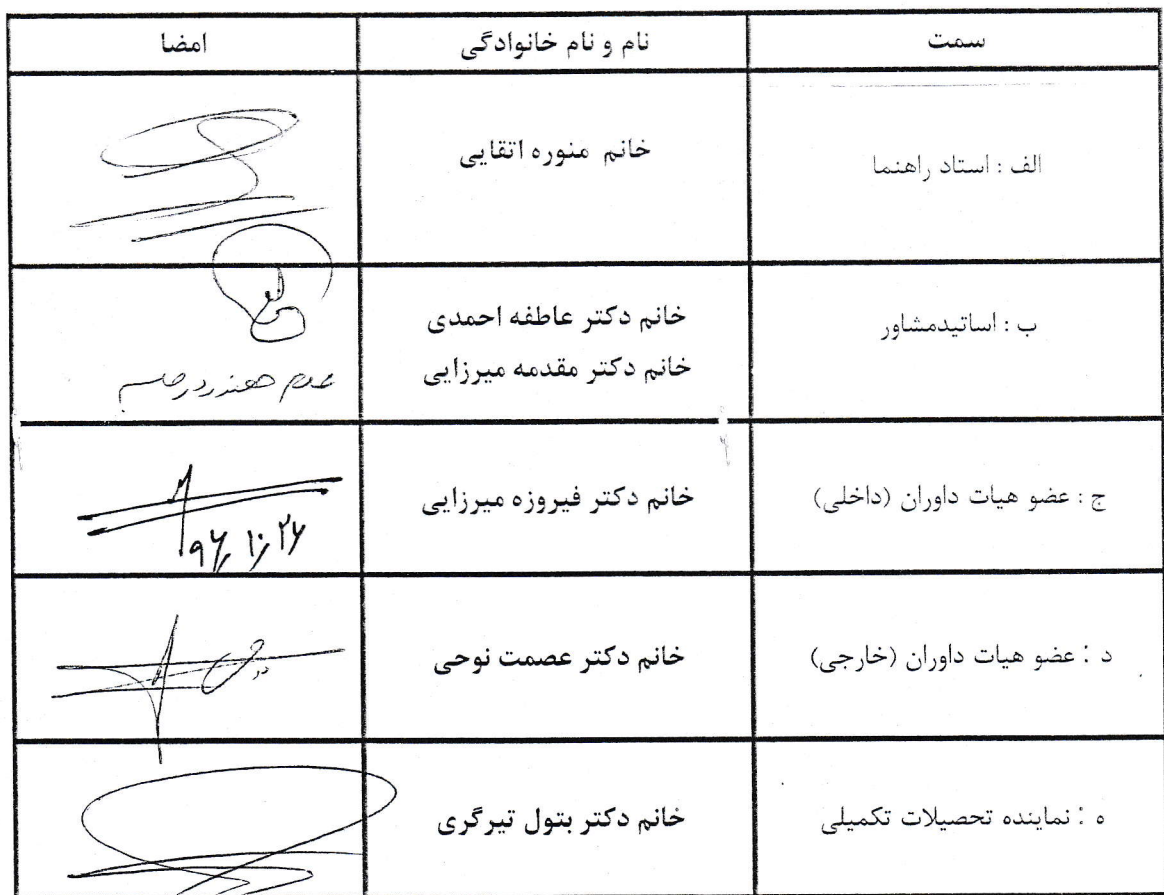 سمت نام و نام خانوادگی امضا
الف : استاد راهنما خانم منوره اتقایی
ب : اساتیدمشاور خانم دکتر عاطفه احمدی
خانم دکتر مقدمه میرزایی عدم حضور در جلسه
ج : عضو هیات داوران (داخلی) خانم دکتر فیروزه میرزایی ۹۶٫۱۰٫۲۶
د : عضو هیات داوران (خارجی) خانم دکتر عصمت نوحی
ه : نماینده تحصیلات تکمیلی خانم دکتر بتول تیرگری